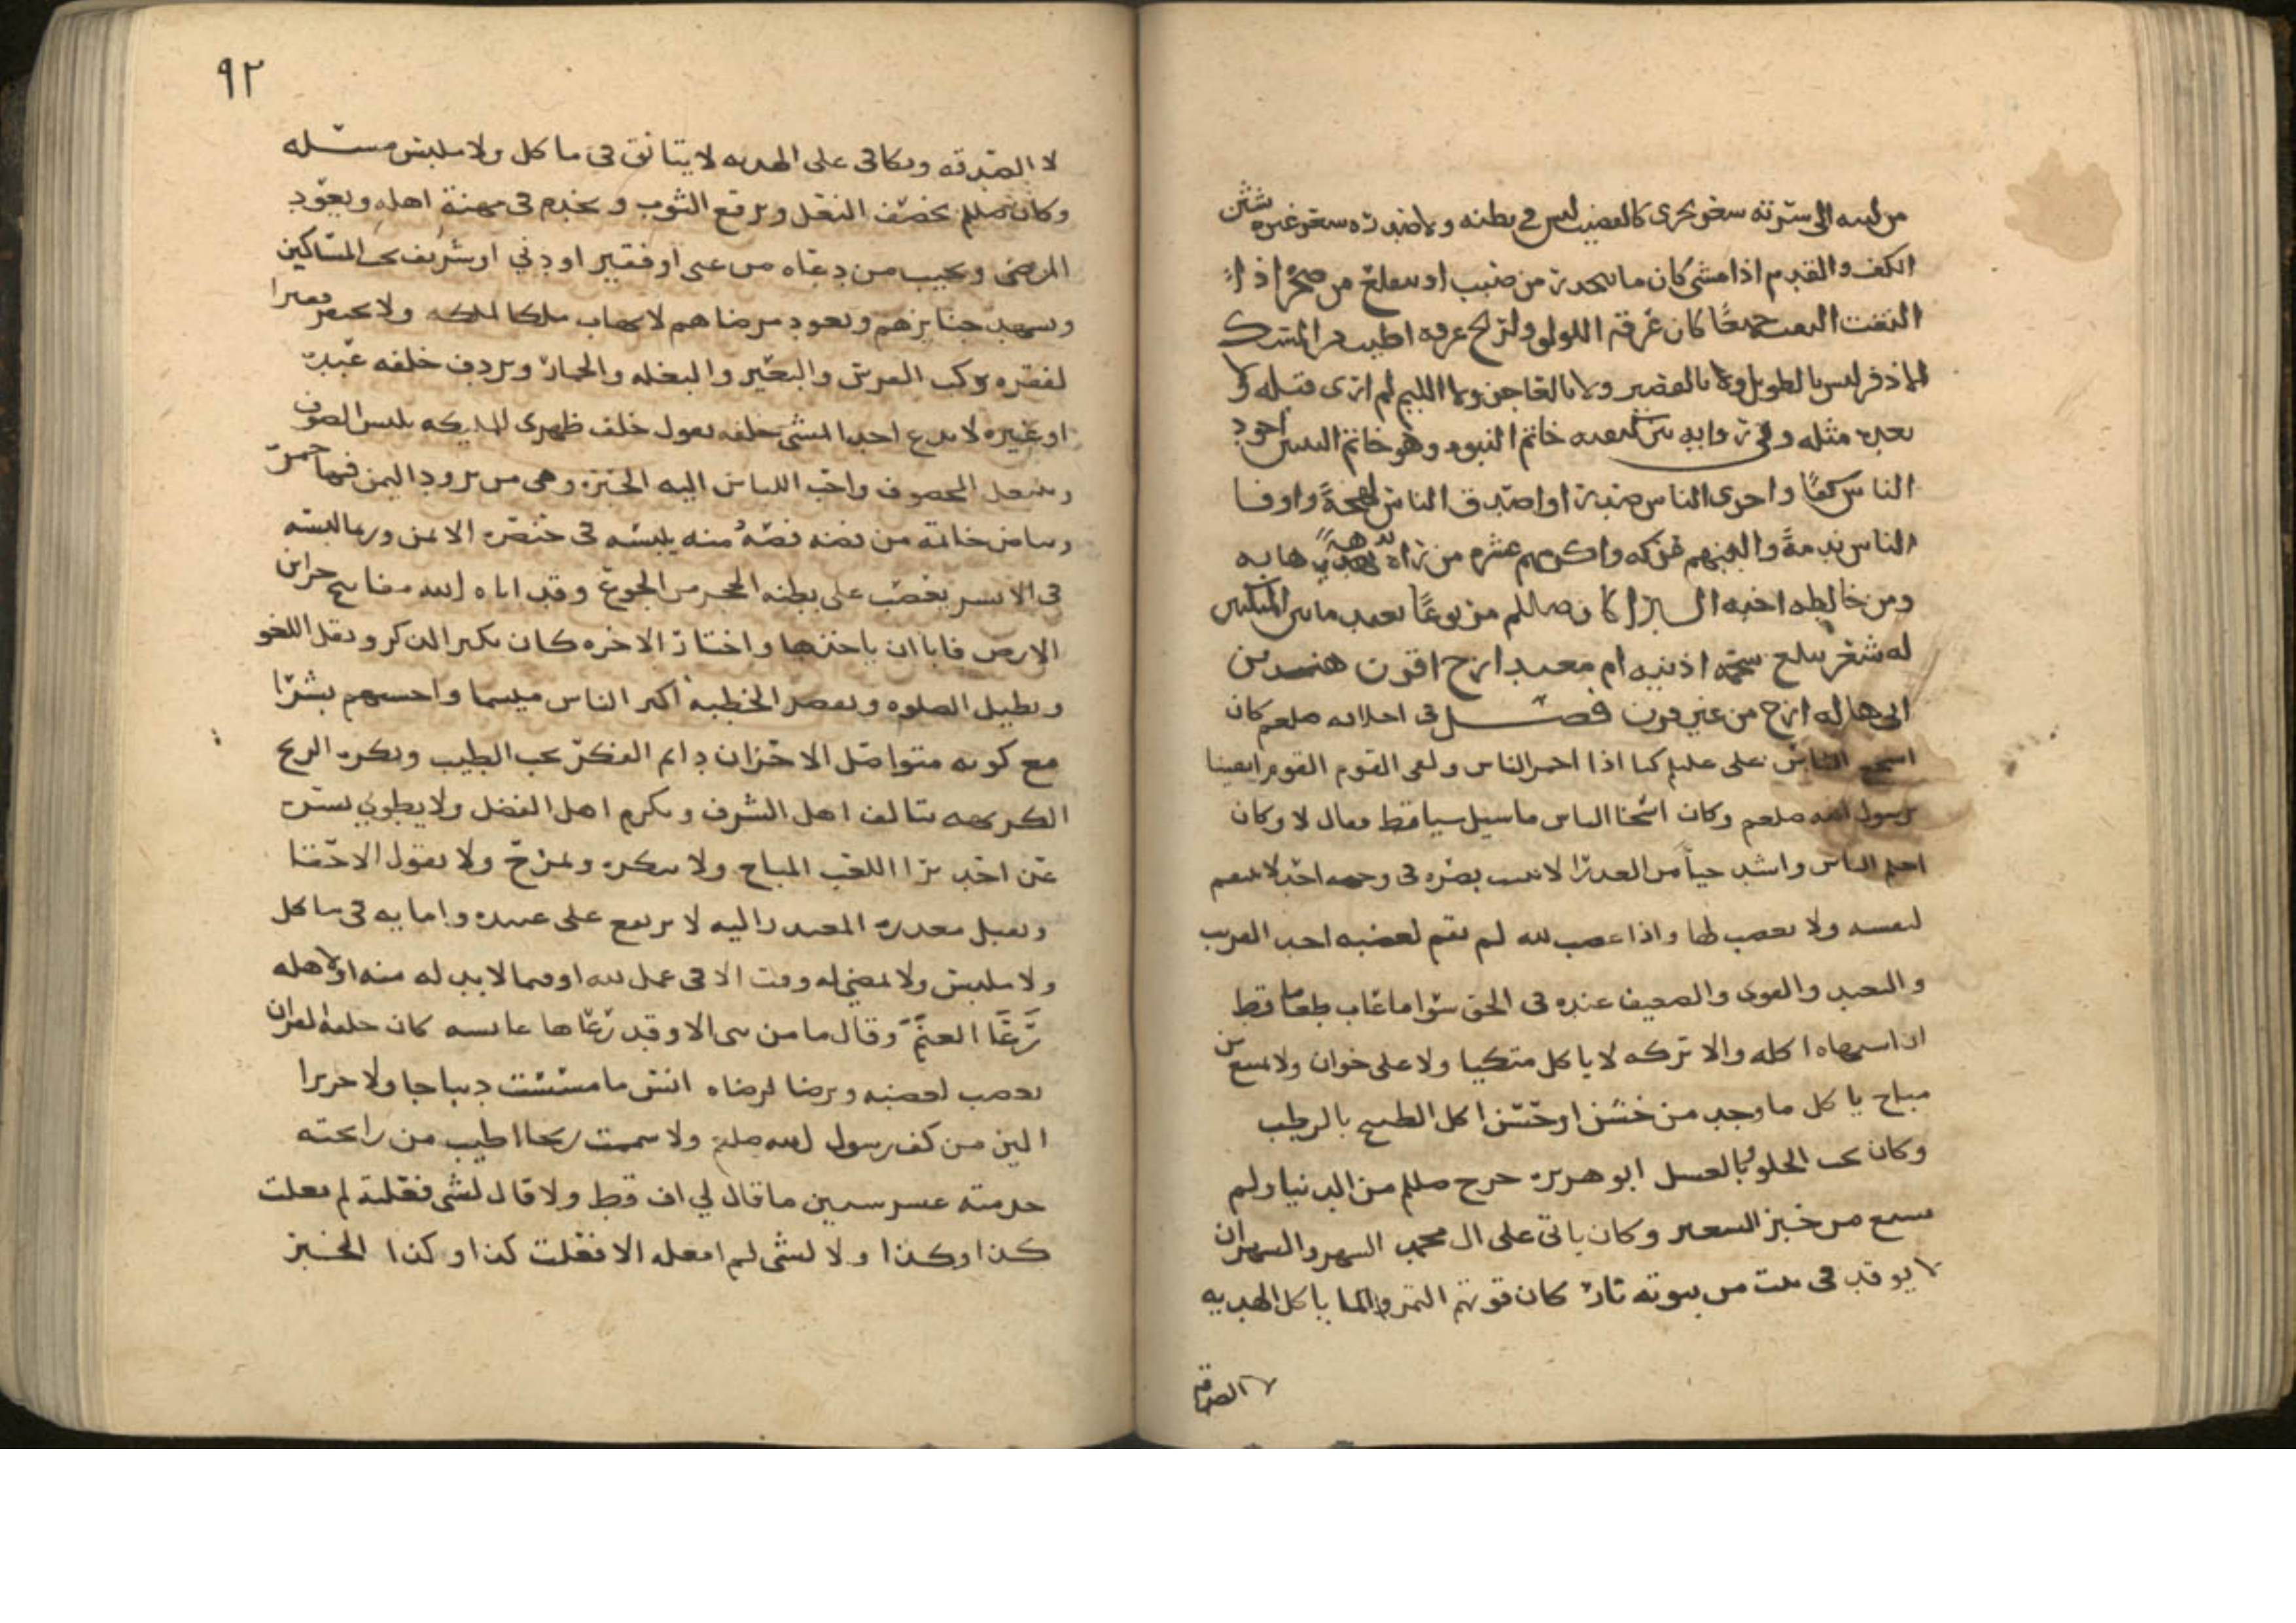 من لبته الى سرته شعر يجرى كالقضيب ليس في بطنه ولا صدره شعر غيره شثن
الكف والقدم اذا مشى كان ما ينحدر من صبب او يتقلع من صخر اذا
التفت التفت جميعا كان عرقه اللولو ولريح عرقه اطيب من المسك
الاذفر ليس بالطويل ولا بالقصير ولا بالعاجز ولا اللييم لم ارى قبله ولا
بعده مثله وفي رواية بين كتفيه خاتم النبوه وهو خاتم النبيين اجود
الناس كفا واجرى الناس صدرا واصدق الناس لهجة واوفا
الناس ذمة والينهم عريكه واكرمهم عشره من راه بديهة هابه
ومن خالطه احبه كان صللم مربوعا بعيد ما بين المنكبين
له شعر يبلغ شحمة اذنيه ام معبد ازج اقرن هند بن
ابى هاله ازج من غير قرن فصل في اخلاقه صلعم كان
اشجع الناس على عليلم كنا اذا احمر الناس ولقى القوم القوم اتقينا
برسول الله صلعم وكان اسخا الناس ما سيل شيا قط فقال لا وكان
احلم الناس واشد حيأ من العذرا لا يثبت بصره في وجه احد لا ينتقم
لنفسه ولا يغضب لها واذا غضب لله لم يقم لغضبه احد القريب
والبعيد والقوى والضعيف عنده في الحق سوا ما عاب طعاما قط
ان اشتهاه اكله والا تركه لا ياكل متكيا ولا على خوان ولا يمتنع من
مباح يا كل ما وجد من خشن او حسن اكل البطيح بالرطب
وكان يحب الحلو بالعسل ابو هريره خرج صللم من الدنيا ولم
يشبع من خبز الشعير وكان ياتي على ال محمد الشهر والشهران
لا يوقد في بيت من بيوته نار كان قوتهم التمر والما ياكل الهديه
لا الصدقه
٩٢
لا الصدقه ويكافى على الهديه لا يتانق في ما كل ولا ملبس مسئله
وكان صللم يخصف النعل ويرقع الثوب ويخدم في مهنة اهله ويعود
المرضى ويجيب من دعاه من غنى او فقير او دني او شريف يحب المساكين
ويشهد جنايزهم ويعود مرضاهم لا يهاب ملكا لملكه ولا يحقر فقيرا
لفقره يركب الفرس والبعير والبغله والحمار ويردف خلفه عبده
او غيره لا يدع احدا يمشى خلفه يقول خلف ظهرى للمليكه يلبس الصوف
وينتعل المخصوف واحب اللباس اليه الحبره وهى من برود اليمن فيها حمره
وبياض خاتمه من فضه فصه منه يلبسه في خنصره الايمن وربما لبسه
في الايسر يعصب على بطنه الحجر من الجوع وقد اتاه الله مفاتيح خزاين
الارض فابا ان ياخذها واختار الاخره كان يكثر الذكر ويقل اللغو
ويطيل الصلوه ويقصر الخطبه اكثر الناس ميسما واحسنهم بشرا
مع كونه متواصل الاحزان دايم الفكر يحب الطيب ويكره الريح
الكريهه يتالف اهل الشرف ويكرم اهل الفضل ولا يطوي بشره
عن احد يرا اللعب المباح ولا ينكره ويمزح ولا يقول الا حقا
ويقبل معذرة المعتذر اليه لا يرتفع على عبيده وامايه في ما كل
ولا ملبس ولا يمضى له وقت الا في عمل لله او فيما لا بد له منه او لاهله
رعا الغنم وقال ما من نبى الا وقد رعاها عايشه كان خلقه القران
يغضب لغضبه ويرضا لرضاه انس ما مسست ديباجا ولا حريرا
الين من كف رسول الله صللم ولا شممت ريحا اطيب من رايحته
خدمته عشر سنين ما قال لي اف قط ولا قال لشى فعلته لم فعلت
كذا وكذا ولا لشى لم افعله الا فعلت كذا وكذا الخبز